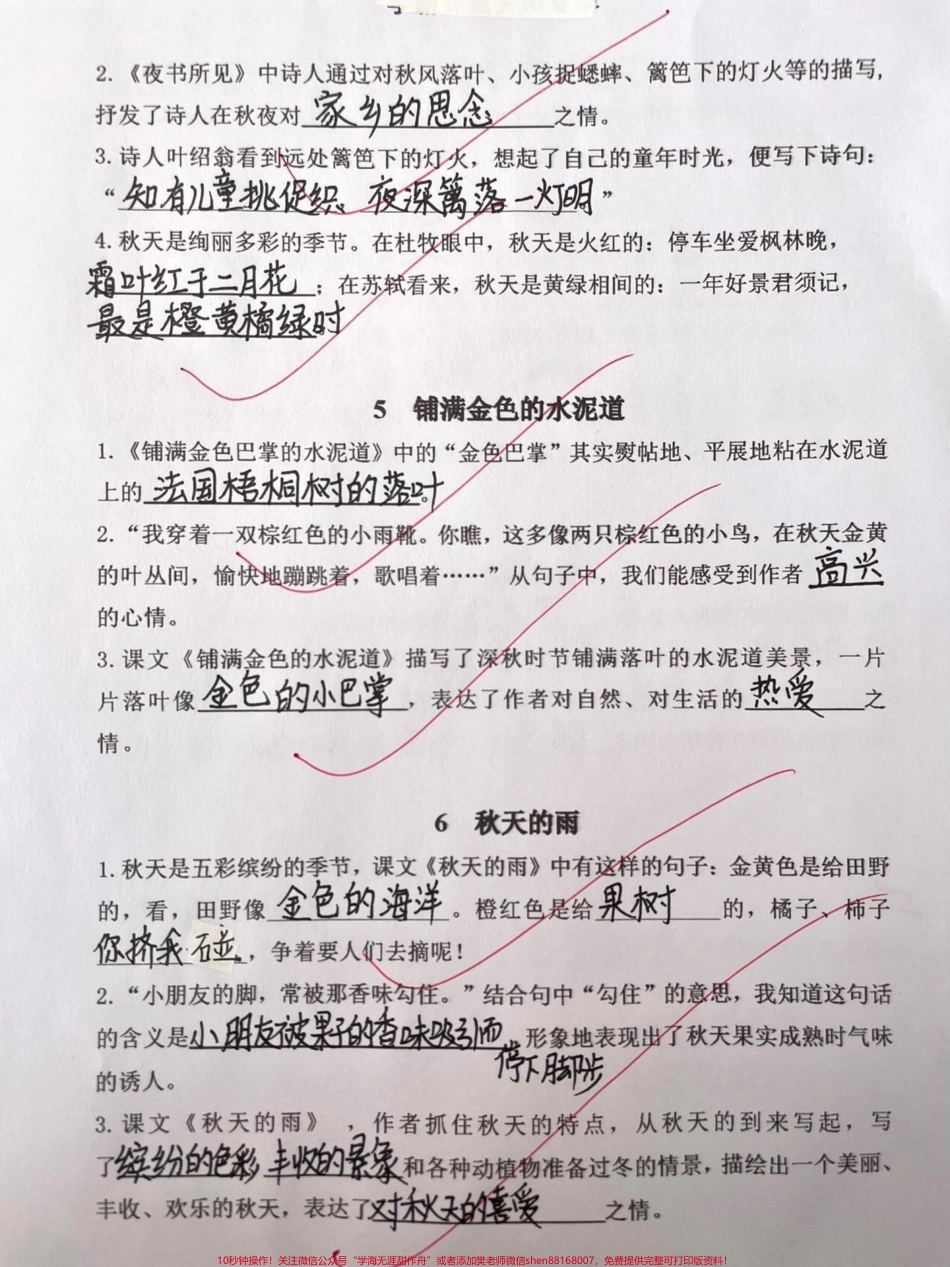 2.《夜书所见》中诗人通过对秋风落叶、小孩捉蟋蟀、篱笆下的灯火等的描写，
抒发了诗人在秋夜对家乡的思念之情。
3.诗人叶绍翁看到远处篱笆下的灯火，想起了自己的童年时光，便写下诗句：
“知有儿童挑促织，夜深篱落一灯明”
4.秋天是绚丽多彩的季节。在杜牧眼中，秋天是火红的：停车坐爱枫林晚，
霜叶红于二月花；在苏轼看来，秋天是黄绿相间的：一年好景君须记，
最是橙黄橘绿时
5 铺满金色的水泥道
1.《铺满金色巴掌的水泥道》中的“金色巴掌”其实熨帖地、平展地粘在水泥道
上的法国梧桐树的落叶。
2.“我穿着一双棕红色的小雨靴。你瞧，这多像两只棕红色的小鸟，在秋天金黄
的叶丛间，愉快地蹦跳着，歌唱着……”从句子中，我们能感受到作者高兴
的心情。
3.课文《铺满金色的水泥道》描写了深秋时节铺满落叶的水泥道美景，一片
片落叶像金色的小巴掌，表达了作者对自然、对生活的热爱之
情。
6 秋天的雨
1.秋天是五彩缤纷的季节，课文《秋天的雨》中有这样的句子：金黄色是给田野
的，看，田野像金色的海洋。橙红色是给果树的，橘子、柿子
你挤我碰，争着要人们去摘呢！
2.“小朋友的脚，常被那香味勾住。”结合句中“勾住”的意思，我知道这句话
的含义是小朋友被果子的香味吸引而停下脚步，形象地表现出了秋天果实成熟时气味
的诱人。
3.课文《秋天的雨》，作者抓住秋天的特点，从秋天的到来写起，写
了缤纷的色彩 丰收的景象和各种动植物准备过冬的情景，描绘出一个美丽、
丰收、欢乐的秋天，表达了对秋天的喜爱之情。
10秒钟操作！关注微信公众号“学海无涯甜作舟”或者添加樊老师微信shen88168007，免费提供完整可打印版资料！